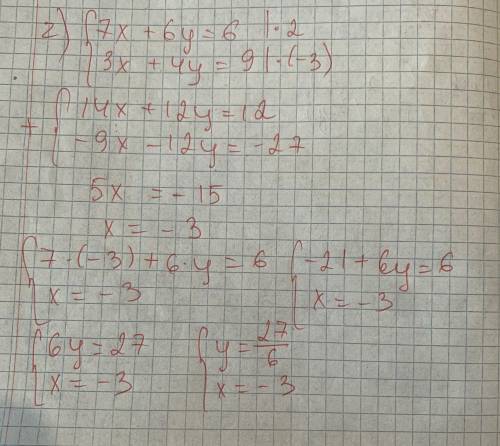 2) { 7x + 6y = 6 | · 2
{ 3x + 4y = 9 | · (-3)
+ { 14x + 12y = 12
{ -9x - 12y = -27
5x = -15
x = -3
{ 7 · (-3) + 6 · y = 6 { -21 + 6y = 6
{ x = -3 { x = -3
{ 6y = 27 { y = 27/6
{ x = -3 { x = -3